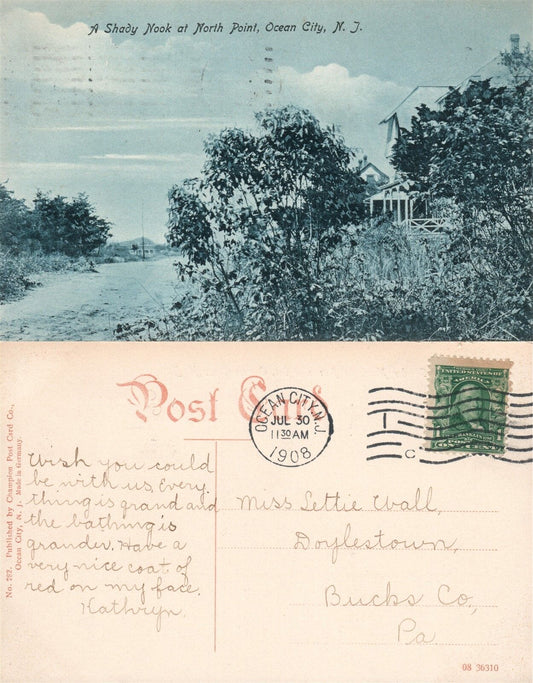 A Shady Nook at North Point, Ocean City, N. J.
Post Card
OCEAN CITY, N.J.
JUL 30
11 30 AM
1908
1
C
No. 782. Published by Champion Post Card Co.,
Ocean City, N. J. Made in Germany.
Wish you could
be with us. Every
thing is grand and
the bathing is
grander. Have a
very nice coat of
red on my face.
Kathryn.
Miss Lettie Wall,
Doylestown,
Bucks Co,
Pa
08 36310